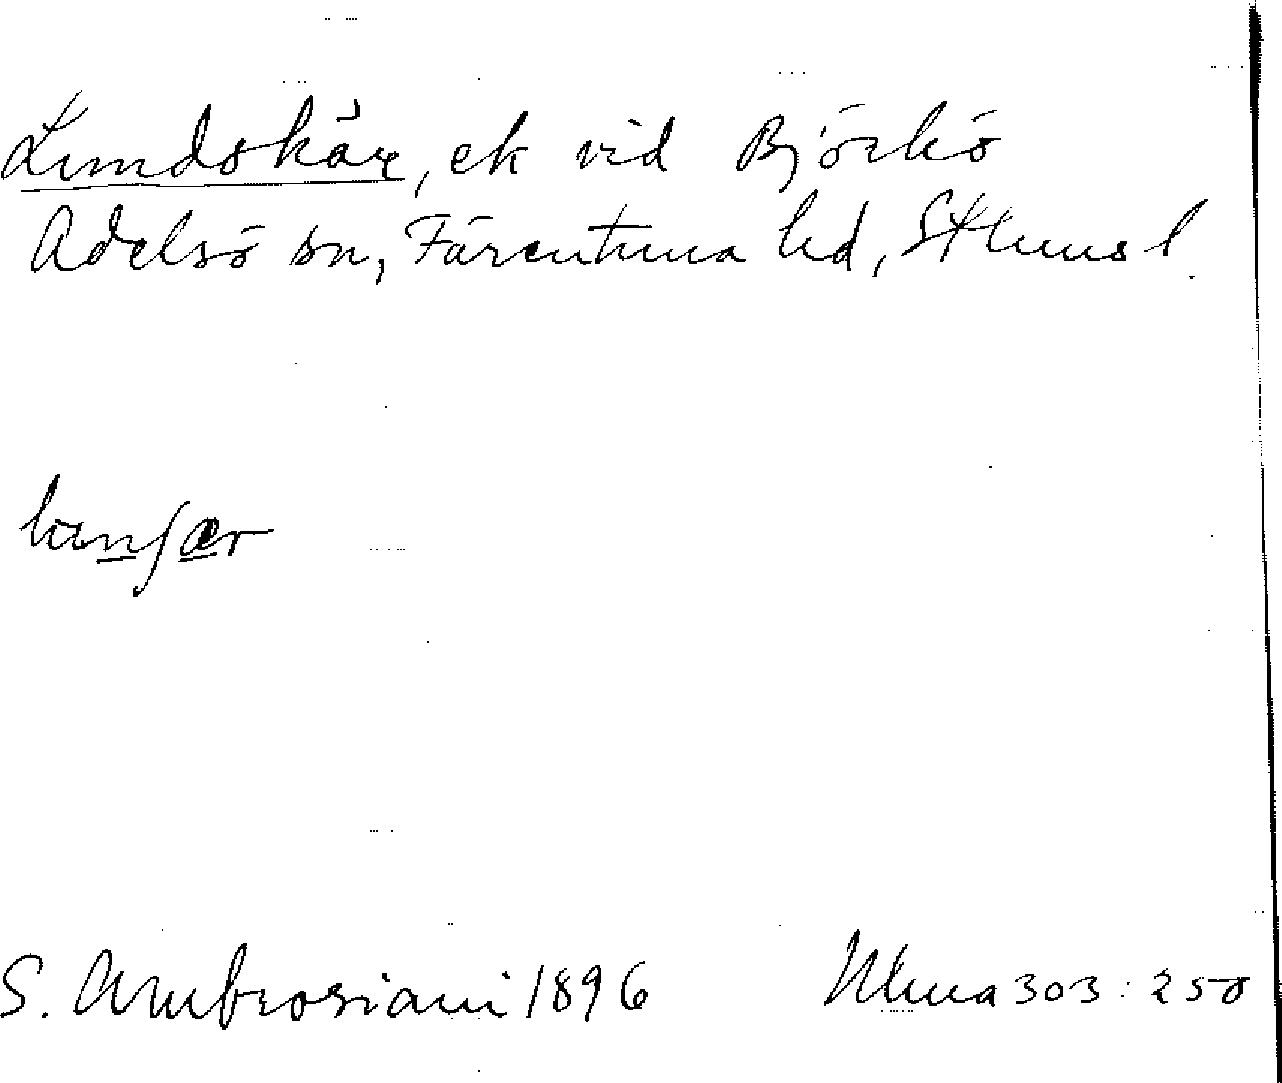 Lundskär, ek vid Björkö
Adelsö sn, Färentuna hd, Sthms l.
lunʃær
S. Ambrosiani 1896
Ulma 303:250